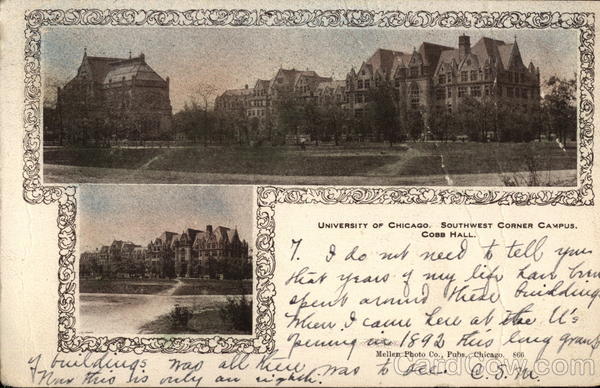 UNIVERSITY OF CHICAGO. SOUTHWEST CORNER CAMPUS.
COBB HALL.
I do not need to tell you
that years of my life have been
spent around these buildings.
When I came here at the U's
opening in 1892 this long gray
Mellen Photo Co., Pubs., Chicago. 866
of buildings was all there was to see. C.S.M.
Now this is only an eighth.
CardCow.com